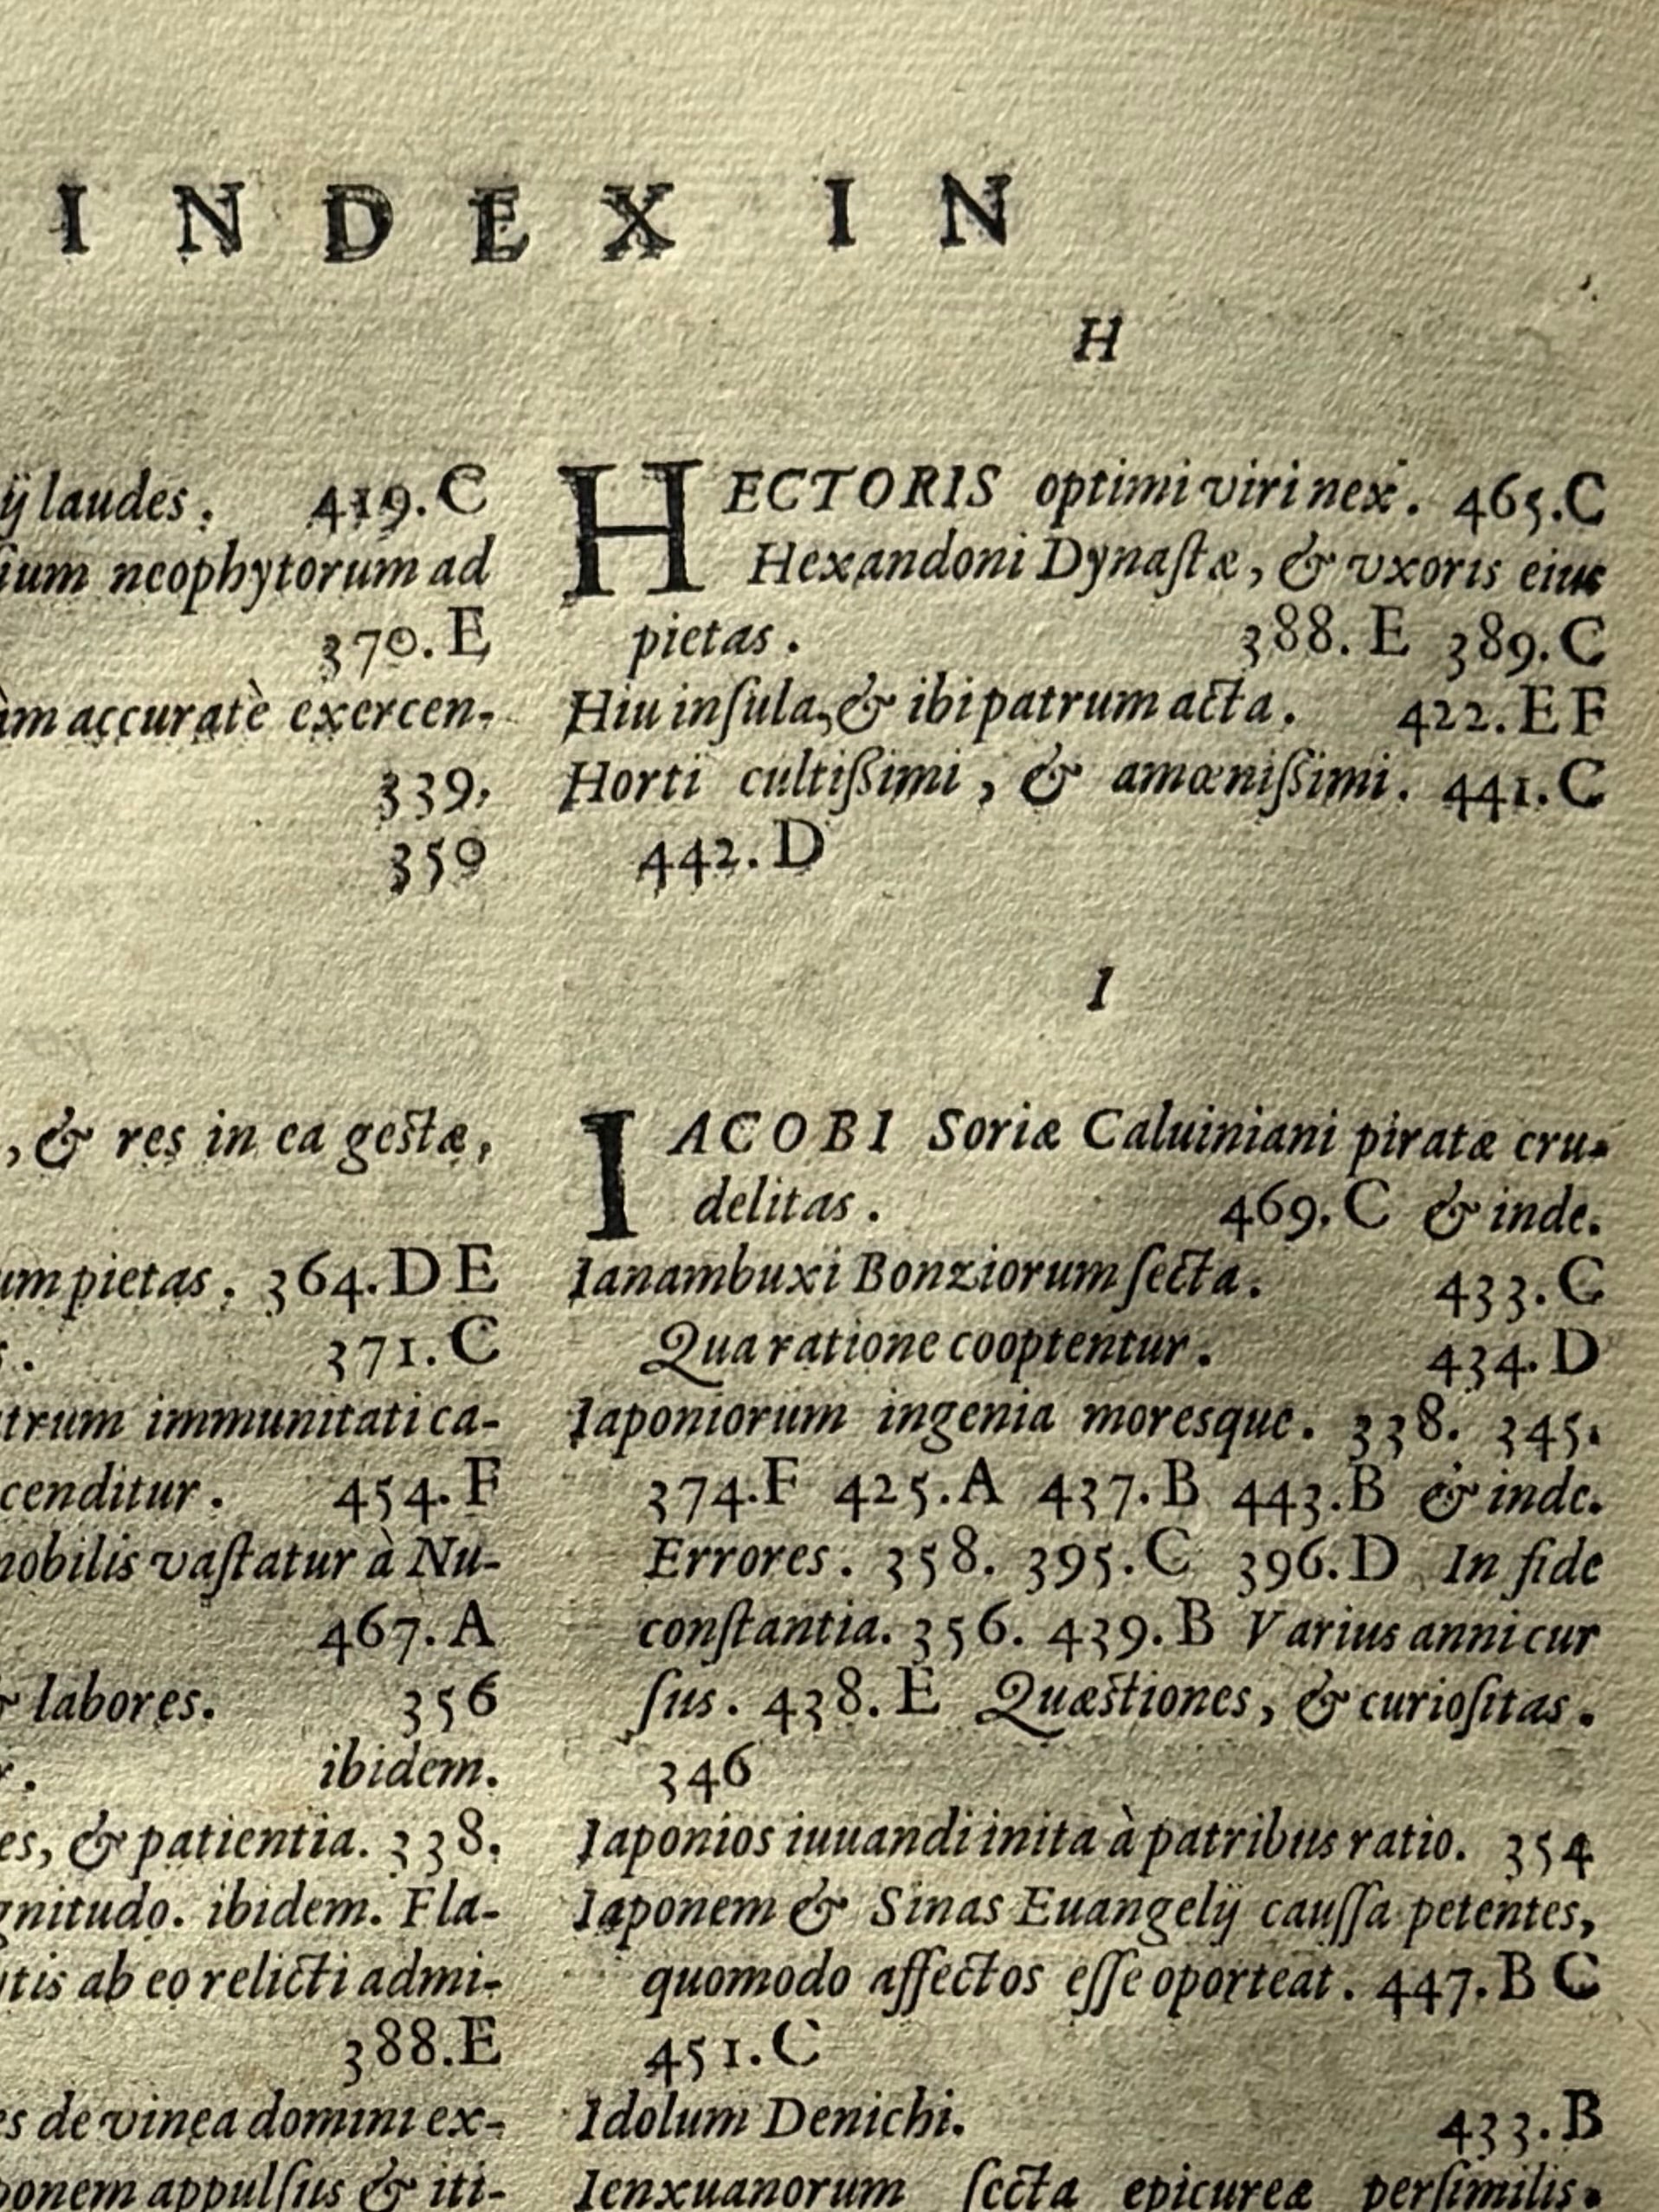 INDEX IN
ij laudes. 419.C
ium neophytorum ad
370.E
àm accuratè exercen-
339.
359
, & res in ea gestæ,
um pietas. 364.D E
. 371.C
trum immunitati ca-
cenditur. 454.F
nobilis vaſtatur à Nu-
467.A
& labores. 356
. ibidem.
es, & patientia. 338.
gnitudo. ibidem. Fla-
tis ab eo relicti admi-
388.E
s de vinea domini ex-
ponem appulſus & iti-
H
HECTORIS optimi viri nex. 465.C
Hexandoni Dynaſtæ, & vxoris eius
pietas. 388.E 389.C
Hiu inſula, & ibi patrum acta. 422.E F
Horti cultiſſimi, & amœniſſimi. 441.C
442.D
I
IACOBI Soriæ Caluiniani piratæ cru-
delitas. 469.C & inde.
Ianambuxi Bonziorum ſecta. 433.C
Qua ratione cooptentur. 434.D
Iaponiorum ingenia moresque. 338. 345.
374.F 425.A 437.B 443.B & inde.
Errores. 358. 395.C 396.D In fide
conſtantia. 356. 439.B Varius anni cur
ſus. 438.E Quæstiones, & curioſitas.
346
Iaponios iuuandi inita à patribus ratio. 354
Iaponem & Sinas Euangelij cauſſa petentes,
quomodo affectos eſſe oporteat. 447.B C
451.C
Idolum Denichi. 433.B
Ienxuanorum ſecta epicureæ perſimilis.